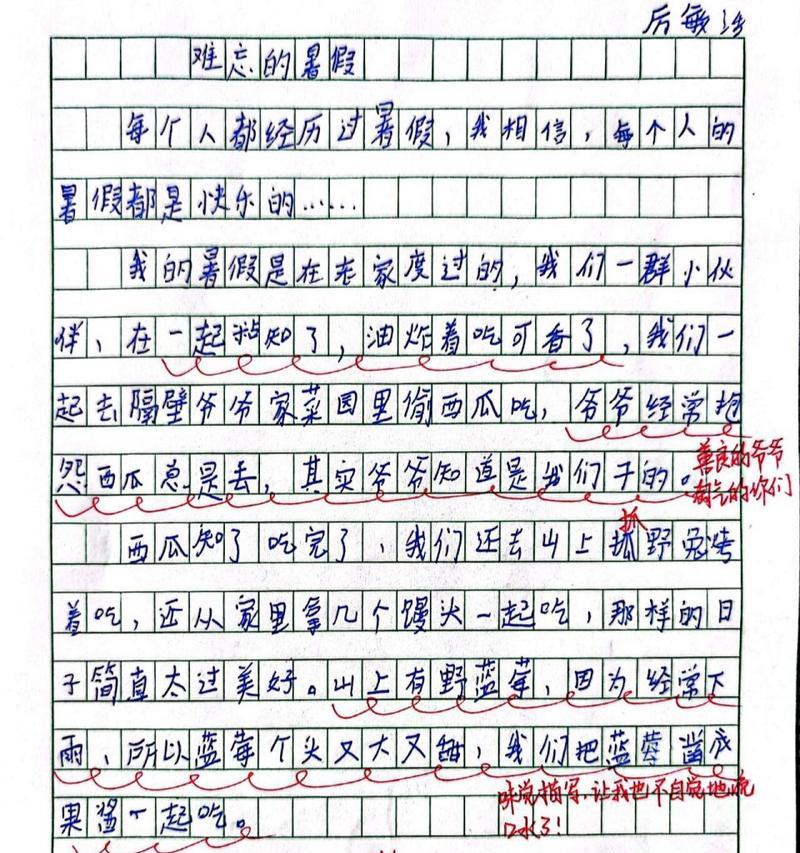 厉敏
难忘的暑假
每个人都经历过暑假，我相信，每个人的
暑假都是快乐的……
我的暑假是在老家度过的，我们一群小伙
伴，在一起粘知了，油炸着吃可香了，我们一
起去隔壁爷爷家菜园里偷西瓜吃，爷爷经常抱
怨西瓜总是丢，其实爷爷知道是我们干的。
善良的爷爷
淘气的你们
抓
西瓜知了吃完了，我们还去山上抓野兔烤
着吃，还从家里拿几个馒头一起吃，那样的日
子简直太过美好。山上有野蓝莓，因为经常下
雨，所以蓝莓个头又大又甜，我们把蓝莓凿成
果酱一起吃。
味觉描写，让我也不自觉地流
口水了！